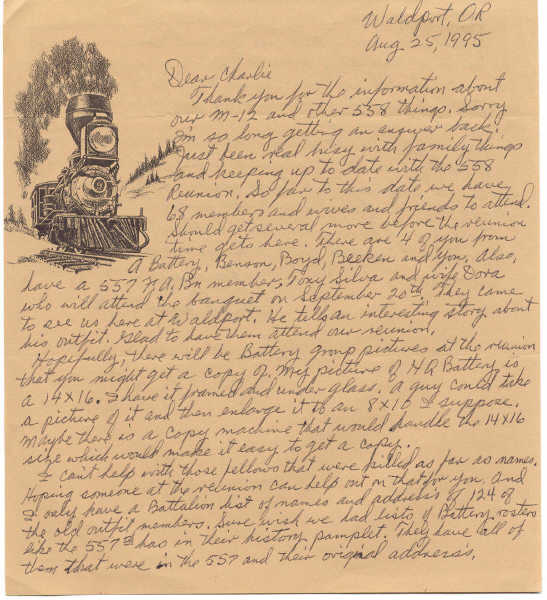 Waldport, OR
Aug 25, 1995
Dear Charlie
Thank you for the information about
our M-12 and other 558 things. Sorry
I'm so long getting an answer back.
Just been real busy with family things
and keeping up to date with the 558
Reunion. So far to this date we have
68 members and wives and friends to attend.
Should get several more before the reunion
time gets here. There are 4 of you from
A Battery, Benson, Boyd, Beeken and you. Also,
have a 557 F.A. Bn member, Tony Silva and wife Dora
who will attend the banquet on September 20th. They came
to see us here at Waldport. He tells an interesting story about
his outfit. Glad to have them attend our reunion.
Hopefully, there will be Battery group pictures at the reunion
that you might get a copy of. My picture of HQ Battery is
a 14X16. I have it framed and under glass. A guy could take
a picture of it and then enlarge it to an 8X10 I suppose.
Maybe there is a copy machine that would handle the 14X16
size which would make it easy to get a copy.
I can't help with those fellows that were killed as far as names.
Hoping someone at the reunion can help out on that for you. And
I only have a Battalion list of names and address of 124 of
the old outfit members. Sure wish we had lists of Battery rosters
like the 557th has in their history pamplet. They have all of
them that were in the 557 and their original address's.